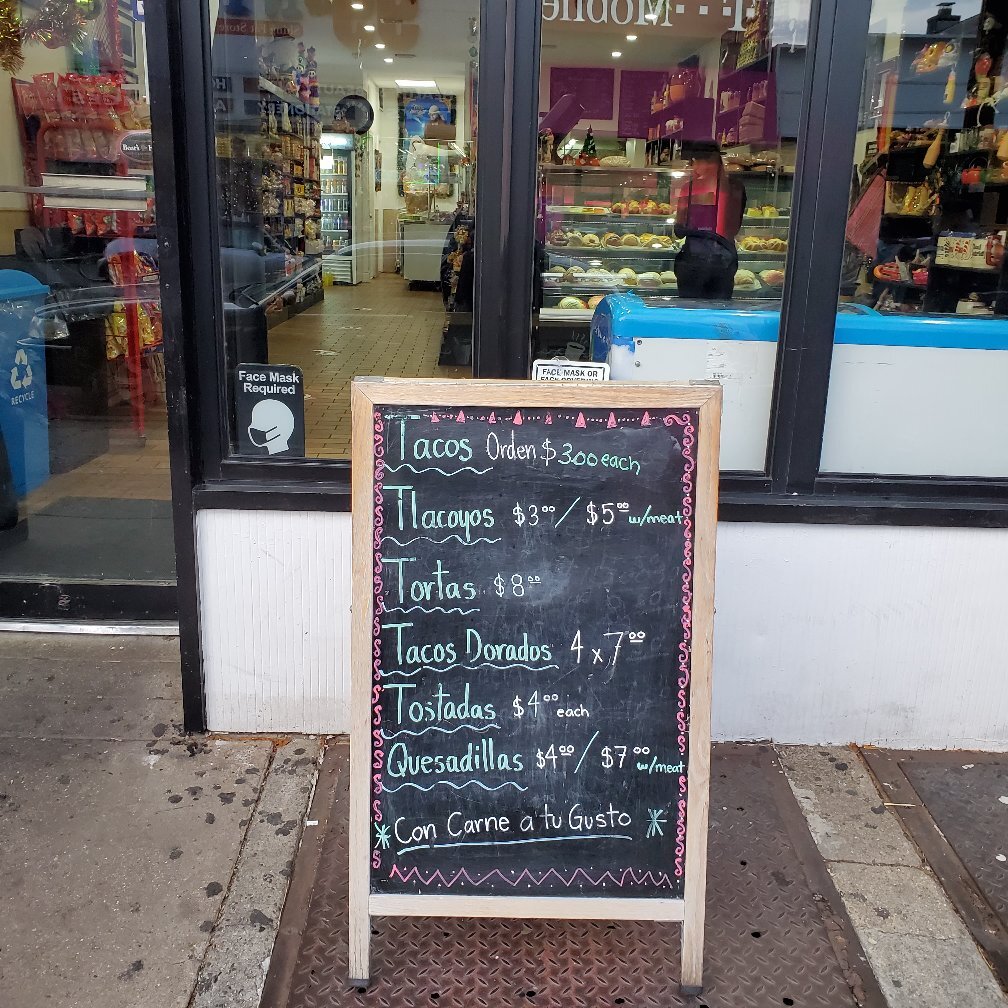 Mobile
Bear's
RECYCLE
Face Mask
Required
FACE MASK OR
FACE COVERING
Tacos Orden $3.00 each
Tlacoyos $3⁰⁰ / $5⁰⁰ w/meat
Tortas $8⁰⁰
Tacos Dorados 4 x 7⁰⁰
Tostadas $4⁰⁰ each
Quesadillas $4⁰⁰ / $7⁰⁰ w/meat
Con Carne a tu Gusto